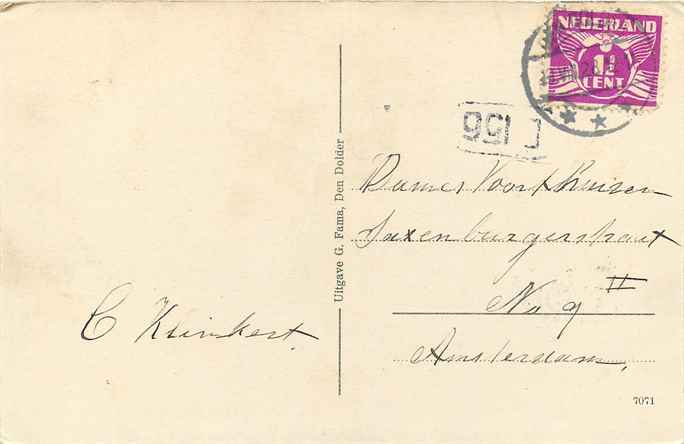 NEDERLAND
1½
CENT
156
Uitgave G. Fama, Den Dolder
Dames Voorthuizen
Saxenburgerstraat
No 9 II
Amsterdam.
C Klinkert.
7071